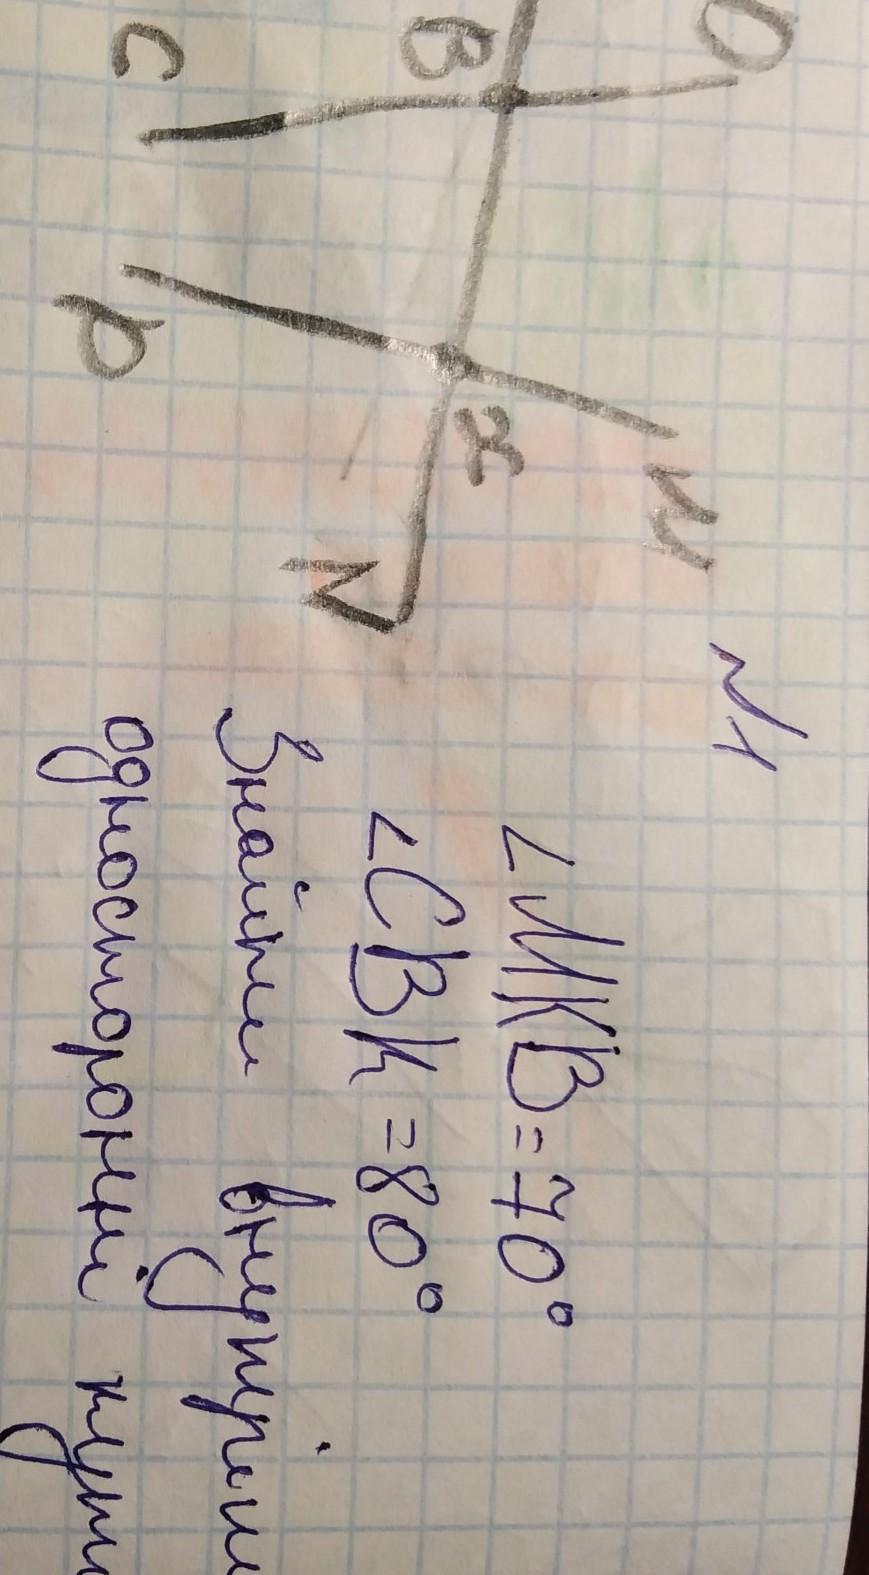 O
B
C
M
K
P
N
N1
∠MKB=70°
∠CBK=80°
Знайти внутрішні
односторонні кути